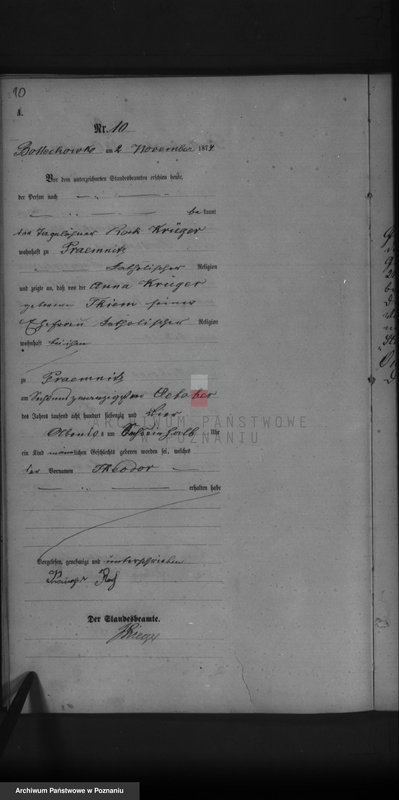 10
A.
Nr. 10
am 2 November 1874
Vor dem unterzeichneten Standesbeamten erschien heute,
der Person nach
bekannt
der Tagelöhner Rock Krüger
wohnhaft zu Praemnitz
katholischer Religion
und zeigte an, daß von der Anna Krüger
geborene Thiem seiner
Ehefrau katholischer Religion
wohnhaft bei ihm
zu Praemnitz
am October
des Jahres tausend acht hundert siebenzig und vier
Abends um Uhr
ein Kind männlichen Geschlechts geboren worden sei, welches
den Vornamen Theodor
erhalten habe
Vorgelesen, genehmigt und unterschrieben
Der Standesbeamte.
ARCHIWUM PAŃSTWOWE
W POZNANIU
Archiwum Państwowe w Poznaniu